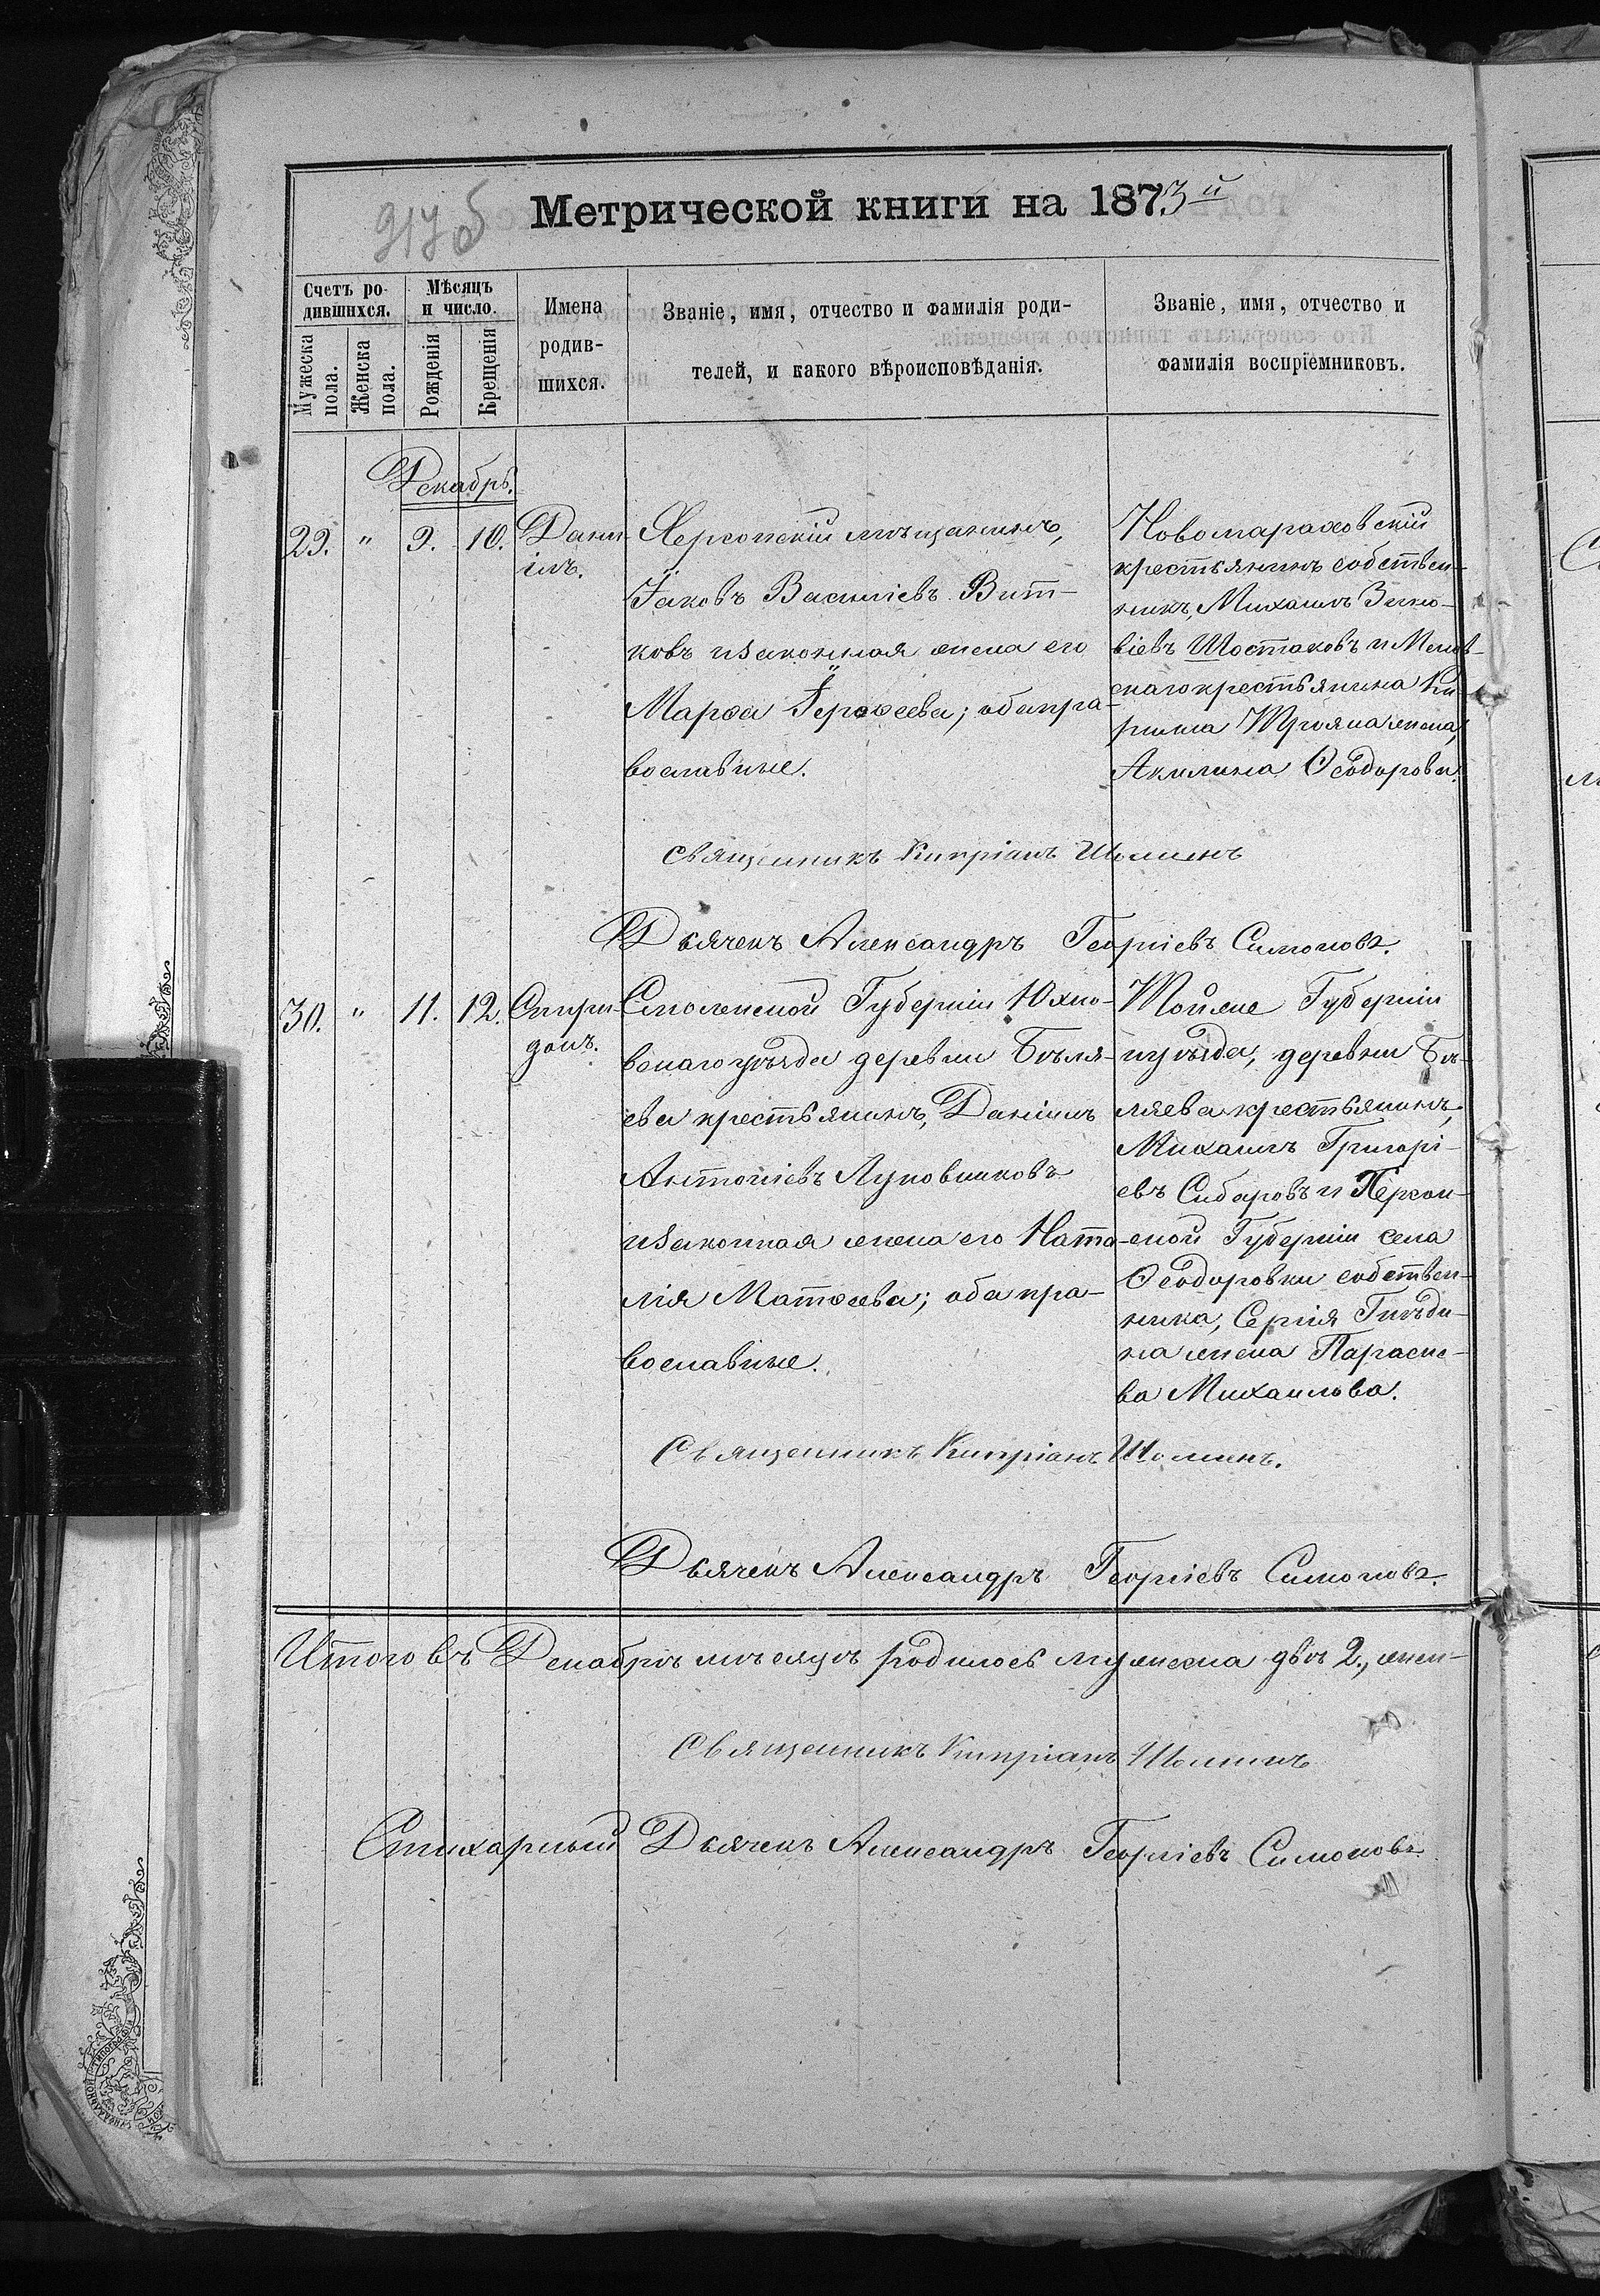 Метрической книги на 1873й
Счетъ ро-
дившихся.
Мѣсяцъ
и число.
Мужеска пола.
Женска пола.
Рожденія
Крещенія
Имена
родив-
шихся.
Званіе, имя, отчество и фамилія роди-
телей, и какого вѣроисповѣданія.
Званіе, имя, отчество и
фамилія воспріемниковъ.
Декабрь.
29. " 9. 10. Дани-
илъ.
Херсонскій мѣщанинъ,
Іаковъ Василіевъ Вит-
ковъ и законная жена его
Марѳа Іероѳеева; оба пра-
вославные.
крестьянинъ собствен-
никъ, Михаилъ Зино-
віевъ Шостаковъ и
скаго крестьянина Ки-
рилла Трояна жена,
Акилина Ѳеодорова.
Священникъ Кипріанъ
Дьячекъ Александръ Георгіевъ Симоновъ.
30. " 11. 12. Спири-
донъ.
Смоленской Губерніи Юхно-
вскаго уѣзда деревни Бѣля-
ева крестьянинъ, Даніилъ
Антоніевъ Луковниковъ
и законная жена его Ната-
лія Матѳеева; оба пра-
вославные.
Той же Губерніи
и уѣзда, деревни Бѣ-
ляева крестьянинъ,
Михаилъ Григорі-
евъ Сидоровъ и Херсон-
ской Губерніи села
Ѳеодоровки собствен-
ника, Сергія Гнѣди-
на жена Параске-
ва Михаилова.
Священникъ Кипріанъ
Дьячекъ Александръ Георгіевъ Симоновъ.
Итого въ Декабрѣ мѣсяцѣ родилось мужеска двѣ 2., жен-
Священникъ Кипріанъ
Стихарный Дьячекъ Александръ Георгіевъ Симоновъ.